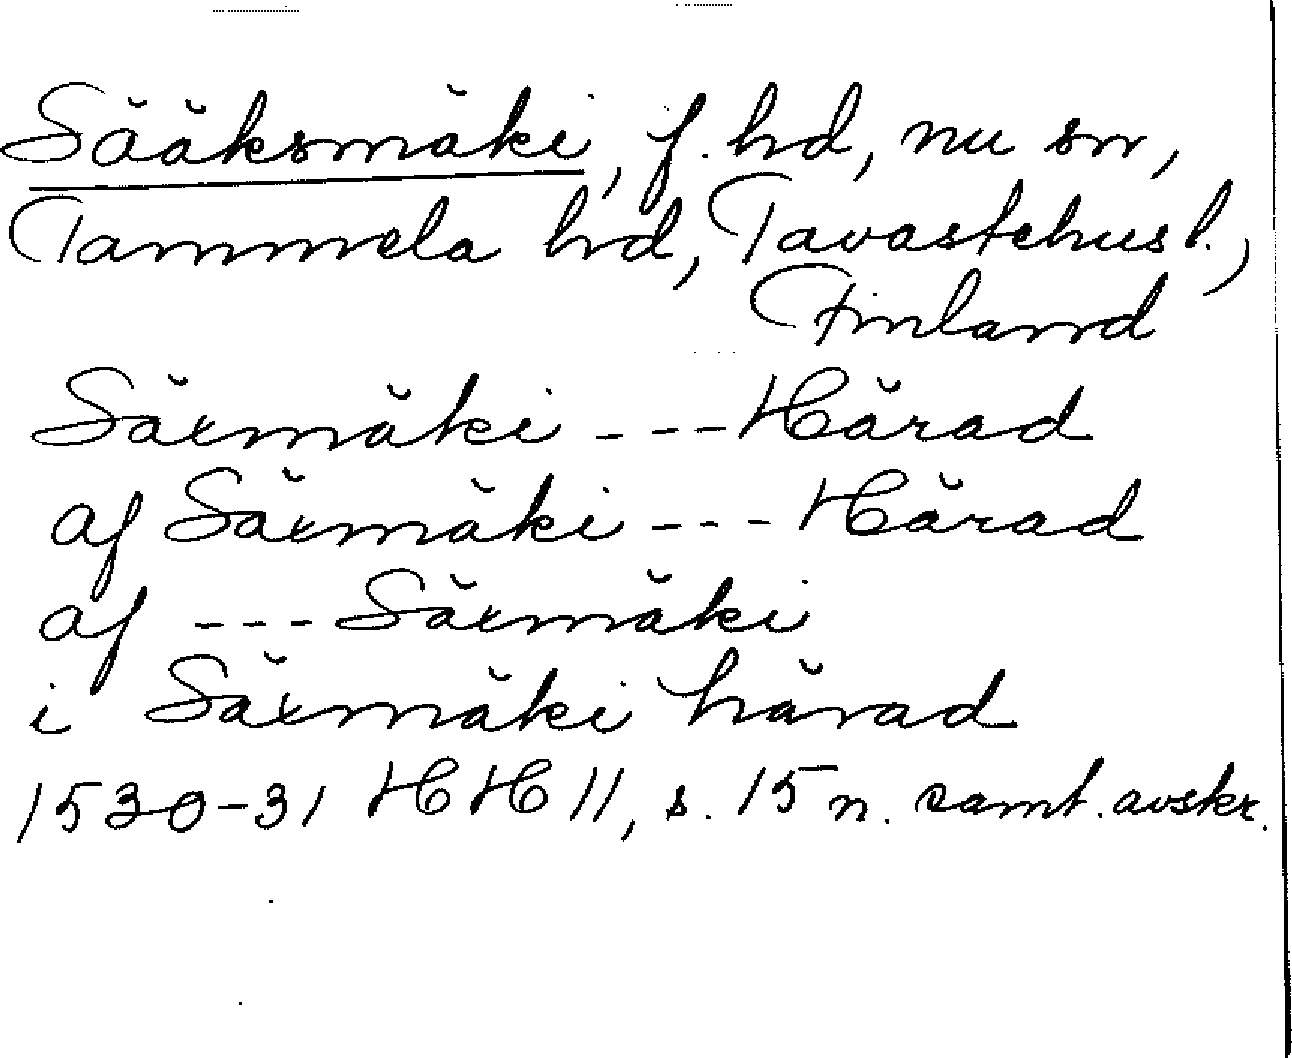 Sääksmäki, f. hd, nu sn,
Tammela hd, Tavastehus l.,
Finland
Säxmäki - - - Härad
af Säxmäki - - - Härad
af - - - Säxmäki
i Säxmäki härad
1530-31 HH 11, s. 15 n. samt. avskr.